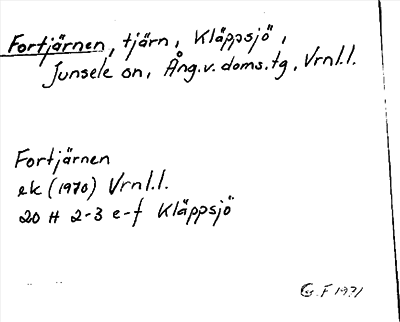 Fortjärnen, tjärn, Kläppsjö,
Junsele sn, Ång.v.doms.tg, Vrnl.l.
Fortjärnen
ek (1970) Vrnl.l.
20 H 2-3 e-f Kläppsjö
G.F 1971